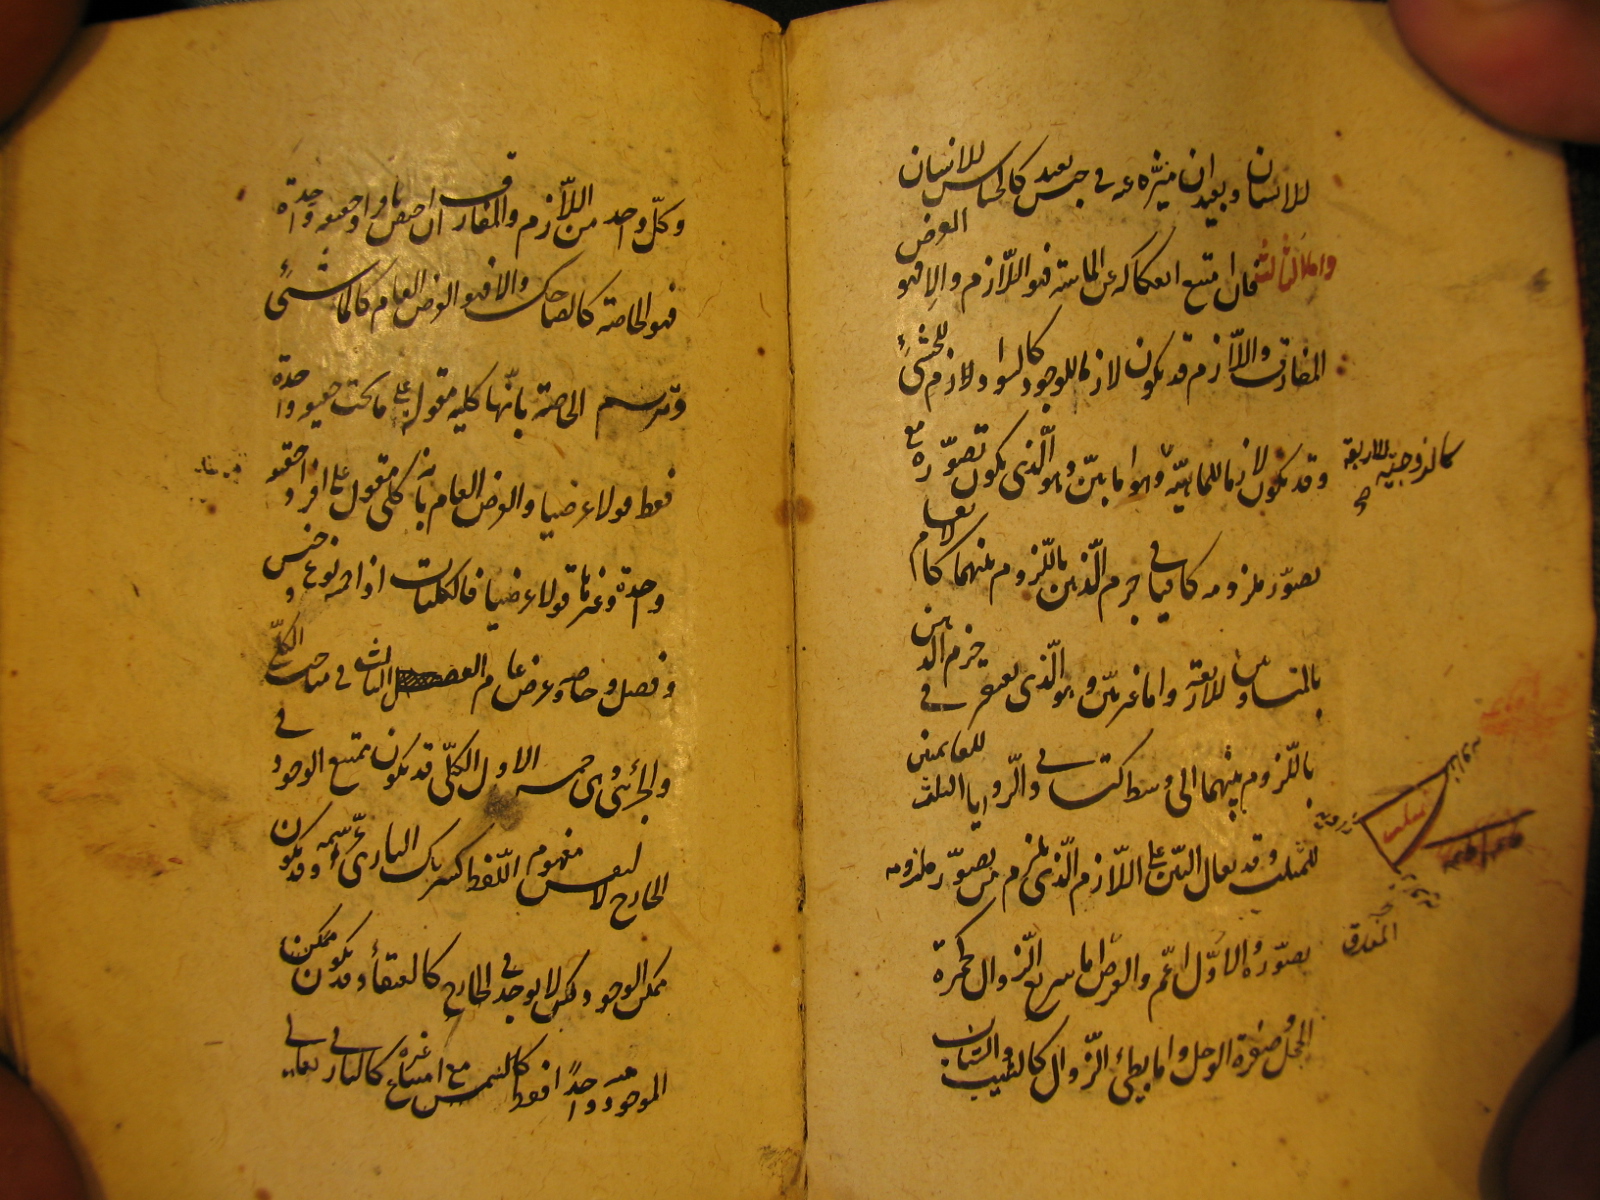 للانسان وبعيد ان ميّزه عنه في جنس بعيد كالحساس للانسان
واما الثالث فان امتنع انفكاكه عن الماهية فهو اللّازم والا فهو العرض
المفارق واللّازم قد يكون لازما للوجود كالسواد للحبشيّ ولازم
وقد يكون لازما للماهيّة وهو اما بيّن وهو الّذي يكون تصوّره مع
تصوّر ملزومه كافيا في جزم الّذهن باللّزوم بينهما كالانقسام
بالمتساويين للاربعة واما غير بيّن وهو الّذي يفتقر في جزم الذهن
باللّزوم بينهما الى وسط كتساوي الزّوايا الثلث للقائمتين
للمثلث وقد يقال البيّن على اللّازم الّذي يلزم من تصوّر ملزومه
تصوّره والاوّل اعمّ والعرض اما سريع الزّوال كحمرة
الخجل وصفرة الوجل واما بطئ الزّوال كالشيب والشباب
كالزوجية للاربعة
صح
المفارق
وكلّ واحد من اللّازم والمفارق ان اختص بافراد حقيقة واحدة
فهو الخاصة كالضاحك والا فهو العرض العام كالماشي
وترسم الخاصة بانّها كلية مقول على ما تحت حقيقة واحدة
فقط قولا عرضيا والعرض العام بأنه كلي مقول على افراد حقيقة
واحدة وغيرها قولا عرضيا فالكليات اذا خمسة نوع وجنس
وفصل وخاصة وعرض عام الفصل الثالث في مباحث الكلي
والجزئي وهي خمسة الاول الكلّي قد يكون ممتنع الوجود في
الخارج لا لنفس مفهوم اللّفظ كشريك الباري عزّ اسمه وقد يكون
ممكن الوجود ولكن لا يوجد في الخارج كالعنقاء وقد يكون ممكن
الموجود منه واحدا فقط مع امتناع غيره كالباري تعالى كالشمس